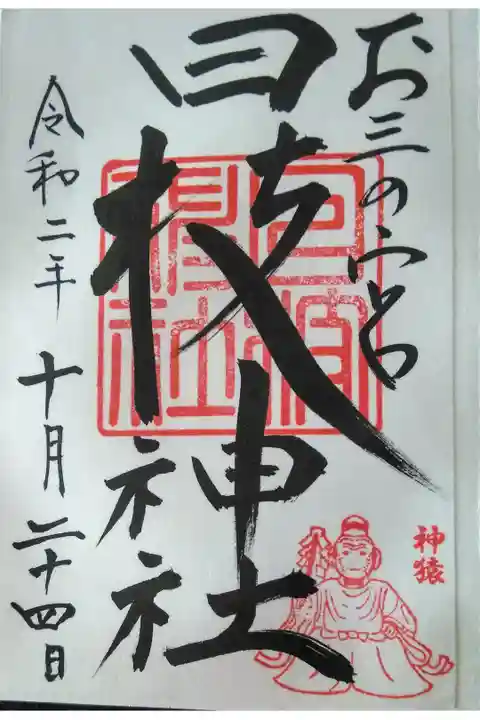 お三の宮
日枝神社
令和二年 十月 二十四日
神猿